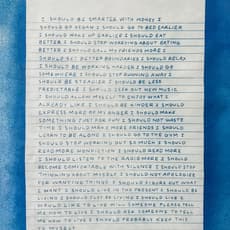 I SHOULD BE SMARTER WITH MONEY I
SHOULD GO VEGAN I SHOULD GO TO BED EARLIER
I SHOULD WAKE UP EARLIER I SHOULD EAT
BETTER I SHOULD STOP WORRYING ABOUT EATING
BETTER I SHOULD CALL MY FRIENDS MORE I
SHOULD SET BETTER BOUNDARIES I SHOULD RELAX
I SHOULD BE WORKING HARDER I SHOULD GO
SOMEWHERE I SHOULD STOP RUNNING AWAY I
SHOULD BE STEADIER I SHOULD BE LESS
PREDICTABLE I SHOULD SEEK OUT NEW MUSIC
I SHOULD ALLOW MYSELF TO ENJOY WHAT I
ALREADY LIKE I SHOULD BE KINDER I SHOULD
EXPRESS MORE OF MY ANGER I SHOULD MAKE
SOMETHING JUST FOR FUN I SHOULD NOT WASTE
TIME I SHOULD MAKE MORE FRIENDS I SHOULD
LEARN TO BE ALONE I SHOULD GO TO THE GYM I
SHOULD STOP WORKING OUT SO MUCH I SHOULD
READ MORE NONFICTION I SHOULD READ MORE
I SHOULD LISTEN TO THE RADIO MORE I SHOULD
BECOME COMFORTABLE WITH SILENCE I SHOULD STOP
THINKING ABOUT MYSELF I SHOULD NOT APOLOGIZE
FOR WANTING THINGS I SHOULD FIGURE OUT WHAT
I WANT I SHOULD LIVE IN THE PRESENT I SHOULD BE
LIVING I SHOULD JUST BE LIVING I SHOULD GIVE I
WOULD LIKE TO LIVE WILL SOMEONE PLEASE TELL
ME HOW TO LIVE I SHOULD ASK SOMEONE TO TELL
ME HOW TO LIVE I SHOULD PROBABLY KEEP THIS
TO MYSELF